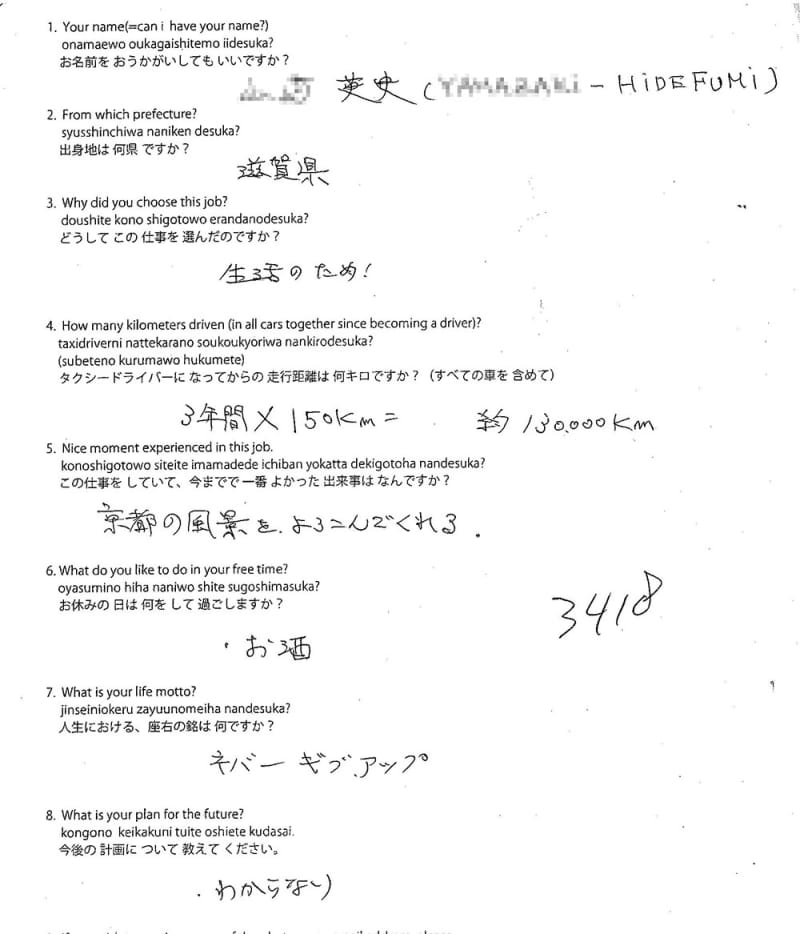 1. Your name(=can i have your name?)
onamaewo oukagaishitemo iidesuka?
お名前を おうかがいしても いいですか？
英史 ( - HiDEFUMi)
2. From which prefecture?
syusshinchiwa naniken desuka?
出身地は 何県 ですか？
滋賀県
3. Why did you choose this job?
doushite kono shigotowo erandanodesuka?
どうして この 仕事を 選んだのですか？
生活のため!
4. How many kilometers driven (in all cars together since becoming a driver)?
taxidriverni nattekarano soukoukyoriwa nankirodesuka?
(subeteno kurumawo hukumete)
タクシードライバーに なってからの 走行距離は 何キロですか？（すべての車を 含めて）
3年間 X 150Km = 約 130.000Km
5. Nice moment experienced in this job.
konoshigotowo siteite imamadede ichiban yokatta dekigotoha nandesuka?
この仕事を していて、今までで 一番 よかった 出来事は なんですか？
京都の風景を.よろこんでくれる.
6. What do you like to do in your free time?
oyasumino hiha naniwo shite sugoshimasuka?
お休みの 日は 何を して 過ごしますか？
3418
・お酒
7. What is your life motto?
jinseiniokeru zayuunomeiha nandesuka?
人生における、座右の銘は 何ですか？
ネバー ギブ.アップ
8. What is your plan for the future?
kongono keikakuni tuite oshiete kudasai.
今後の 計画に ついて 教えて ください。
.わからない